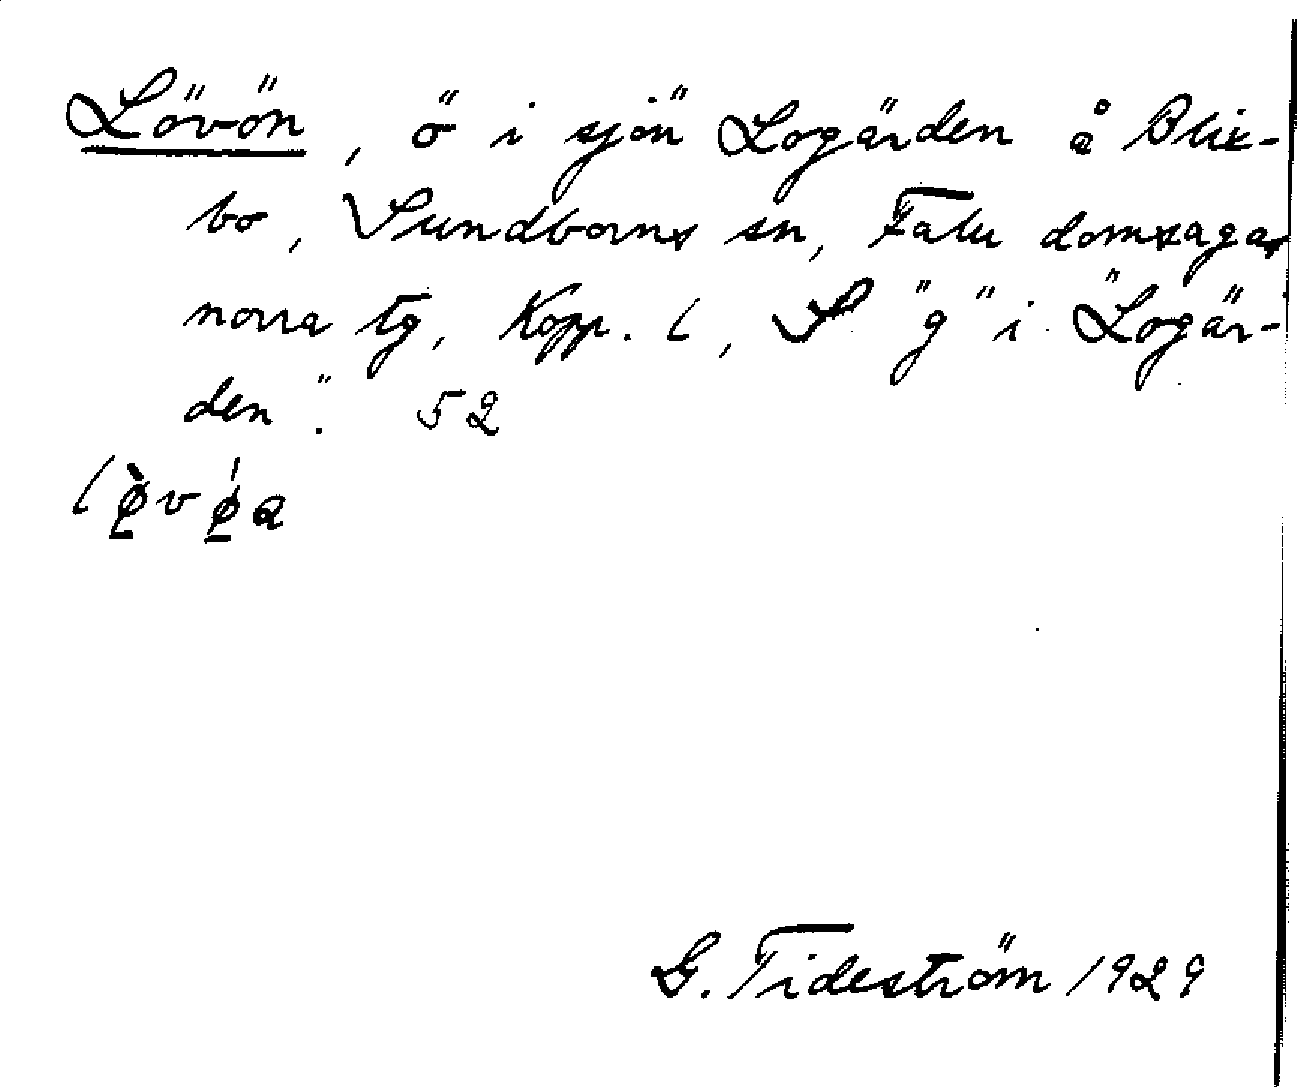 Lövön, ö i sjön Logärden å Blix-
bo, Sundborns sn, Falu domsagas
norra tg, Kopp. l, S "g" i "Logär-
den". 52
lø̀vǿa
G. Tideström 1929